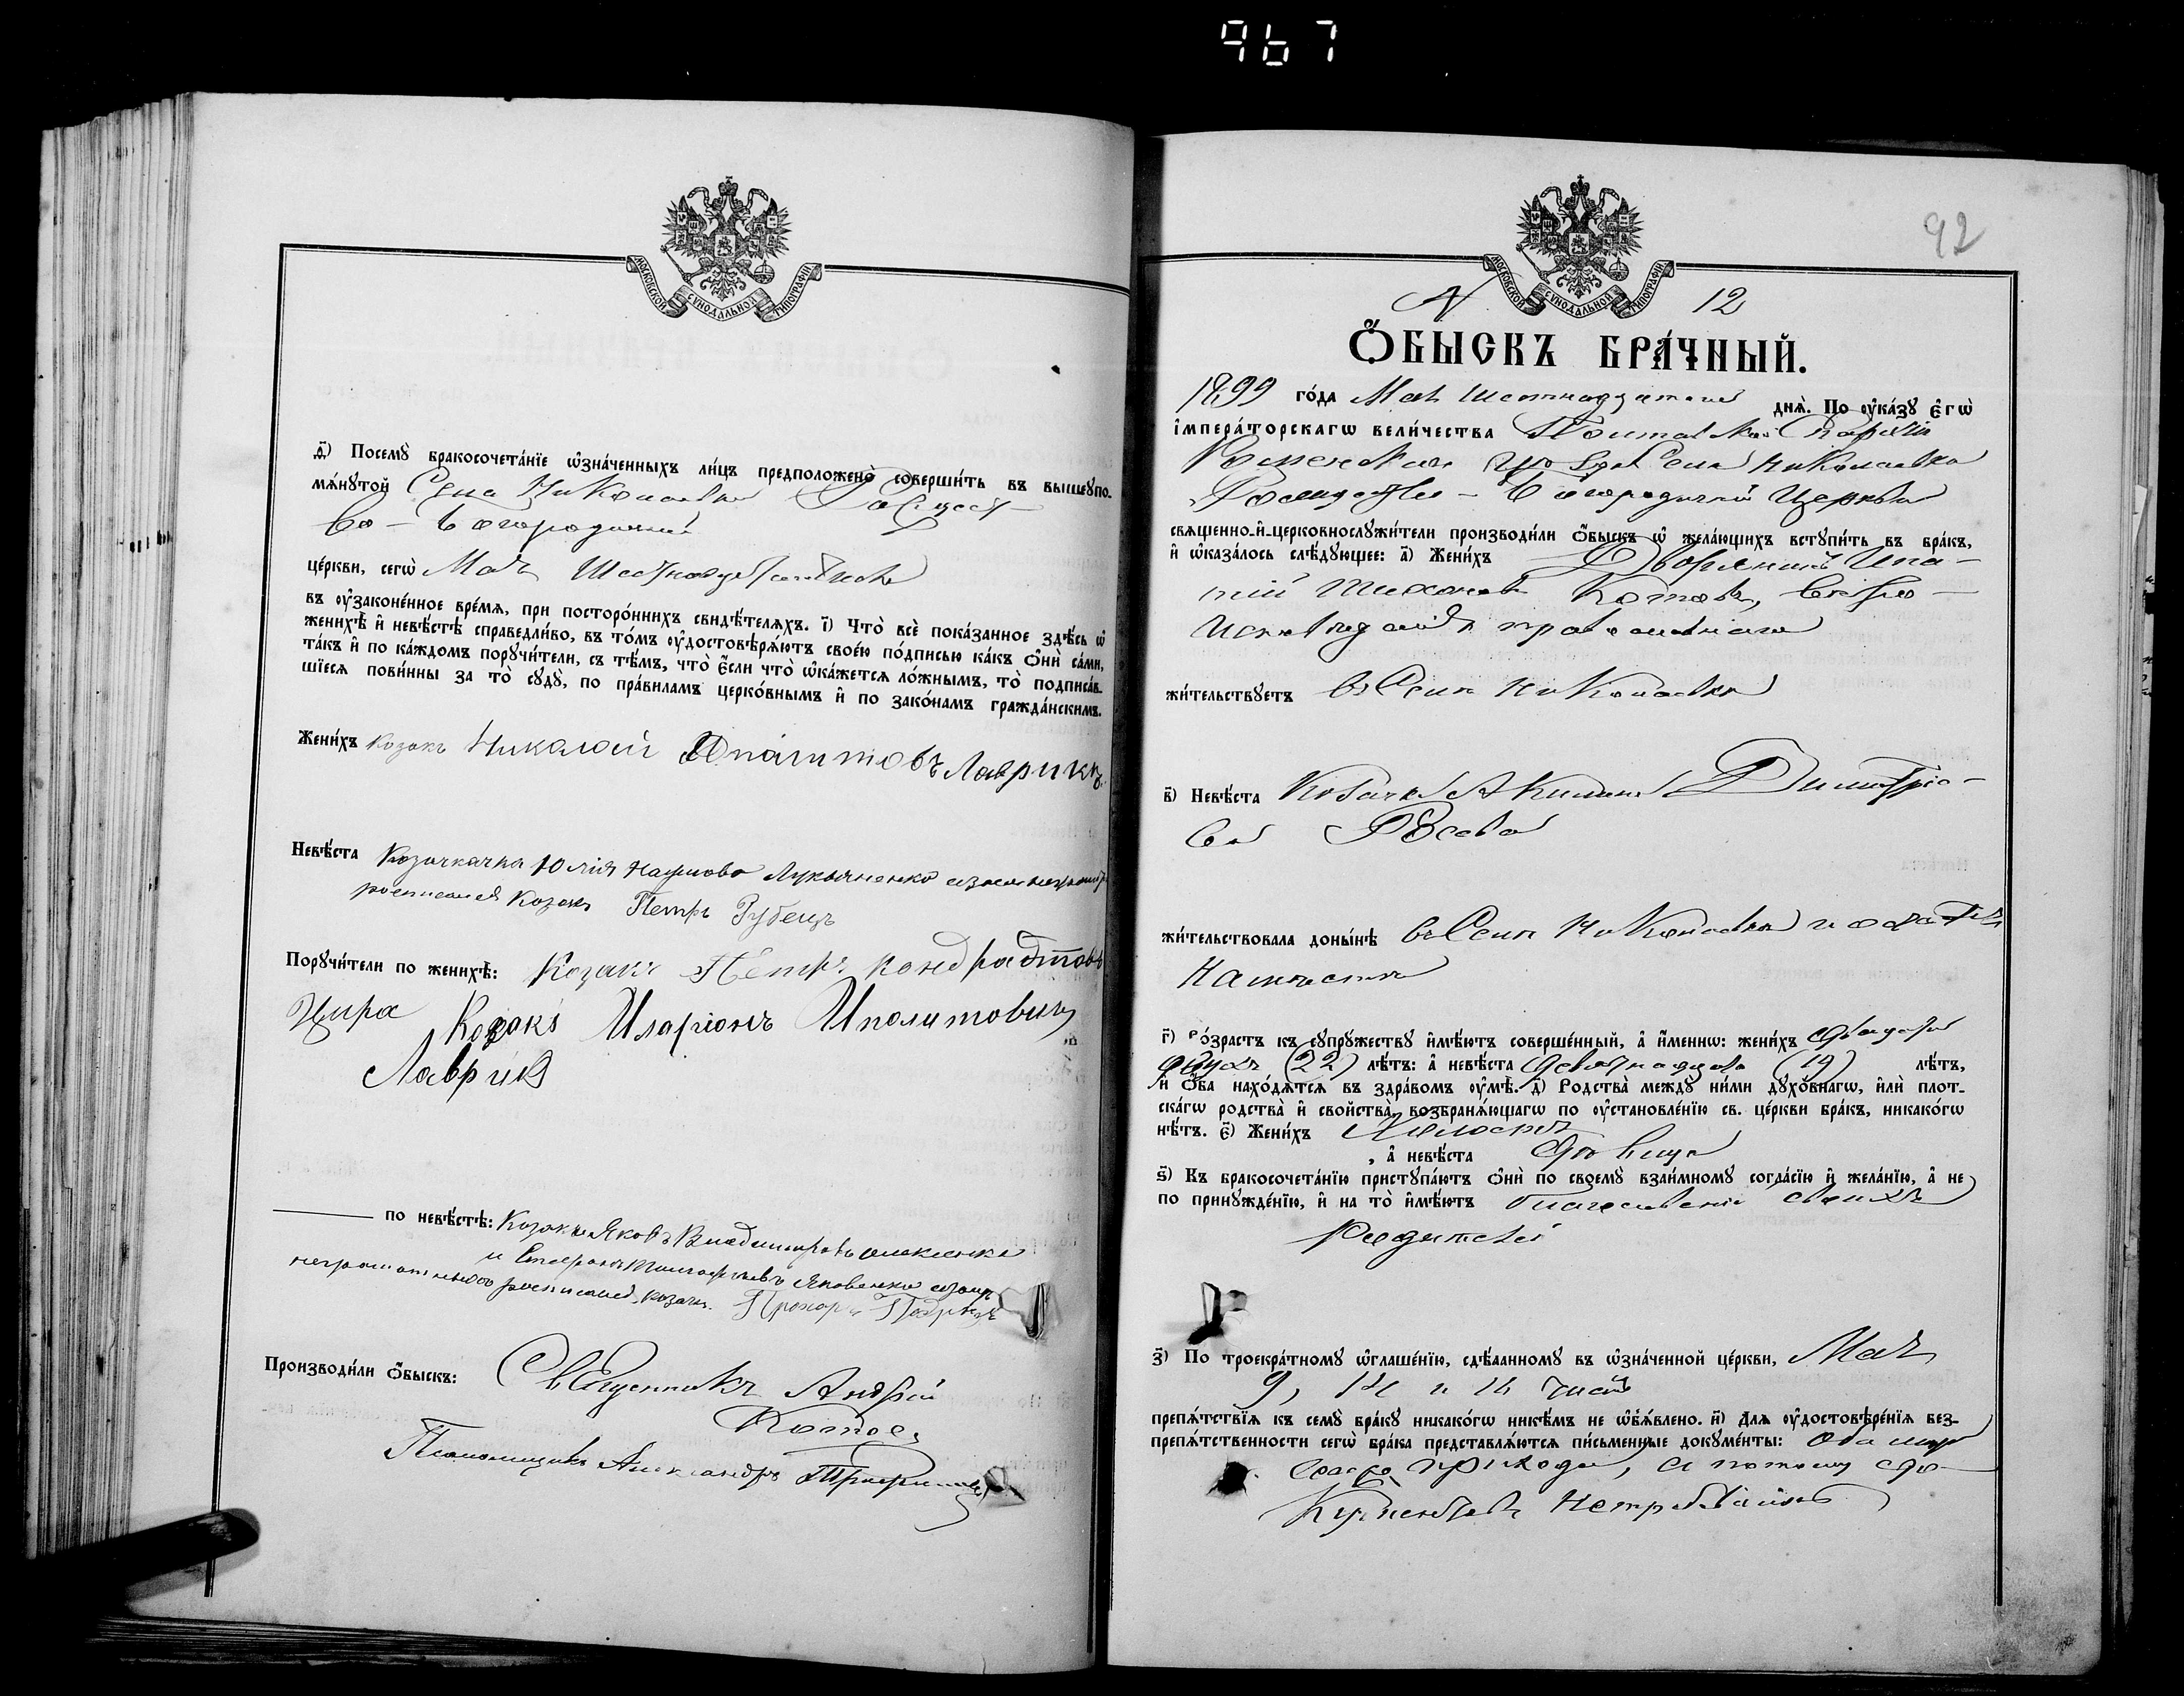 967
МОСКОВСКОЙ СѴНОДАЛЬНОЙ ТИПОГРАФІИ
д҃) Посемꙋ̀ бракосочета́нїе ѡ҆зна́ченныхъ ли́цъ предположено̀ соверши́ть въ вышеꙋпо-
мѧ́нꙋтой Села Николаевки Рождест-
во-Богородичной
це́ркви, сегѡ̀ Мая
въ ᲂу҆зако́ненное вре́мѧ, при посторо́ннихъ свидѣ́телѧхъ. і҃) Что̀ всѐ пока́занное здѣ́сь ѡ҆
женихѣ̀ и҆ невѣ́стѣ справедли́во, въ то́мъ ᲂу҆достовѣрѧ́ютъ свое́ю по́дписью ка́къ ѻ҆нѝ са́ми,
та́къ и҆ по ка́ждомъ порꙋчи́тели, съ тѣ́мъ, что̀ є҆́сли что̀ ѡ҆ка́жетсѧ ло́жнымъ, то̀ подписа́в-
шїесѧ пови́нны за то̀ сꙋдꙋ̀, по пра́виламъ церко́внымъ и҆ по зако́намъ гражда́нскимъ.
Жени́хъ козакъ Николай Ипалитовъ Лаврикъ
Невѣ́ста Козачка Юлія Наумова Лукьяненко
росписался Козакъ Петръ Рубецъ
Порꙋчи́тели по женихѣ̀: Козакъ Пётръ Кондратовъ
Цира Козакъ Иларіонъ Иполитовичъ
Лаврик
по невѣ́стѣ: Козаки Яковъ Владиміровъ
и Яковенко
неграмотныхъ росписался козакъ Прохоръ
Производи́ли ѻ҆́быскъ: Священникъ Андрей
Котовъ
Псаломщикъ Александръ
92
МОСКОВСКОЙ СѴНОДАЛЬНОЙ ТИПОГРАФІИ
N 12
Ѻ҆́БЫСКЪ БРА́ЧНЫЙ.
1899 го́да Мая Шестнадцатаго днѧ̀. По ᲂу҆ка́зꙋ є҆гѡ̀
і҆мпера́торскагѡ вели́чества Полтавской Епархіи
Роменскаго уезда Села Николаевки
Рождество-Богородичной Церкви
свѧщенно-и҆-церковнослꙋжи́тели производи́ли ѻ҆́быскъ ѡ҆ жела́ющихъ встꙋпи́ть въ бра́къ,
и҆ ѡ҆каза́лось слѣ́дꙋющее: а҃) Жени́хъ Дворянинъ Ипа-
тій Тихоновъ Котовъ,
исповеданія православнаго
жи́тельствꙋетъ въ Селе Николаевки
в҃) Невѣ́ста Козачка Акилина Димитріе-
ва
жи́тельствовала доны́нѣ въ Селе Николаевки
г҃) Во́зрастъ къ сꙋпрꙋ́жествꙋ и҆мѣ́ютъ соверше́нный, а҆ и҆́меннѡ: жени́хъ двадцати
двухъ (22) лѣ́тъ: а҆ невѣ́ста девятнадцати (19) лѣ́тъ,
и҆ ѻ҆́ба нахо́дѧтсѧ въ здра́вомъ ᲂу҆мѣ̀. д҃) Родства̀ междꙋ̀ ни́ми дꙋхо́внагѡ, и҆лѝ плот-
ска́гѡ родства̀ и҆ сво́йства̀, возбранѧ́ющагѡ по ᲂу҆становле́нїю св. це́ркви бра́къ, никако́гѡ
нѣ́тъ. є҃) Жени́хъ Холостъ
, а҆ невѣ́ста вдовица
ѕ҃) Къ бракосочета́нїю пристꙋпа́ютъ ѻ҆нѝ по своемꙋ̀ взаи́мномꙋ согла́сїю и҆ жела́нїю, а҆ не
по принꙋжде́нїю, и҆ на то̀ и҆мѣ́ютъ благословеніе своихъ
Родителей
з҃) По троекра́тномꙋ ѡ҆глаше́нїю, сдѣ́ланномꙋ въ ѡ҆зна́ченной це́ркви, Мая
9, 14 и 16 числъ
препѧ́тствїѧ къ семꙋ̀ бра́кꙋ никако́гѡ никѣ́мъ не ѡ҆б̾ѧ́влено. и҃) Длѧ ᲂу҆достовѣре́нїѧ без-
препѧ́тственности сегѡ̀ бра́ка представлѧ́ютсѧ пи́сьменные докꙋме́нты: Оба
прихода, а потому до-
кументовъ не требовалось